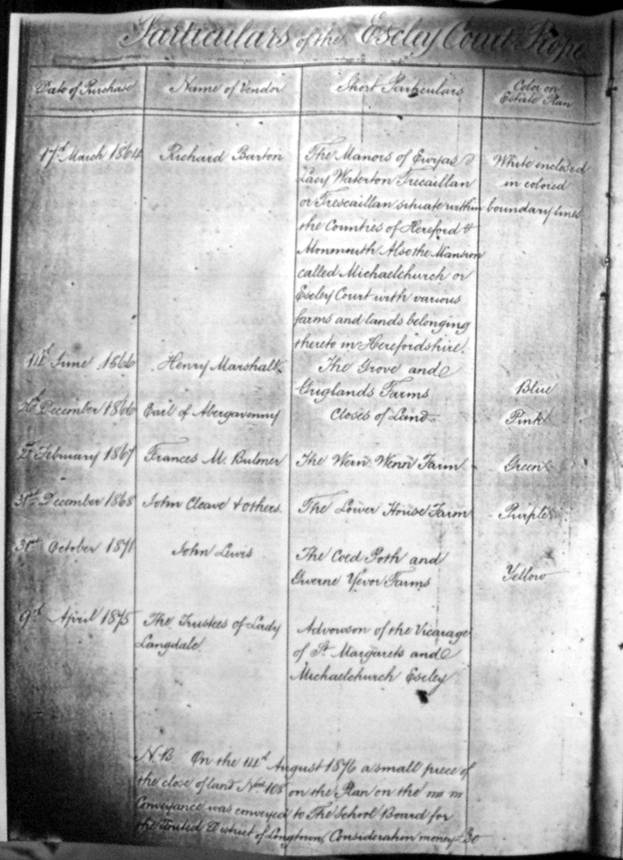 Particulars of the Escley Court Prope
Date of Purchase Name of Vendor Short Particulars Color on
Estate Plan
17th March 1864 Richard Barton The Manors of Ewyas White enclosed
Lacy Waterton Trecaillan in colored
or Trescaillan situate within boundary lines
the Counties of Hereford &
Monmouth Also the Mansion
called Michaelchurch or
Escley Court with various
farms and lands belonging
thereto in Herefordshire.
14th June 1866 Henry Marshall The Grove and
Griglands Farms Blue
December 1866 Earl of Abergavenny Closes of Land Pink
February 1867 Frances M. Bulmer The Wern Wenn Farm Green
31st December 1868 John Cleave & others The Lower House Farm Purple
31st October 1871 John Lewis The Coed Poth and
Gwerne Yevor Farms Yellow
9th April 1875 The Trustees of Lady Advowson of the Vicarage
Langdale of St. Margarets and
Michaelchurch Escley
N.B. On the 14th August 1876 a small piece of
the close of land No. 108 on the Plan on the
Conveyance was conveyed to The School Board for
the United District of Longtown, Consideration money £30